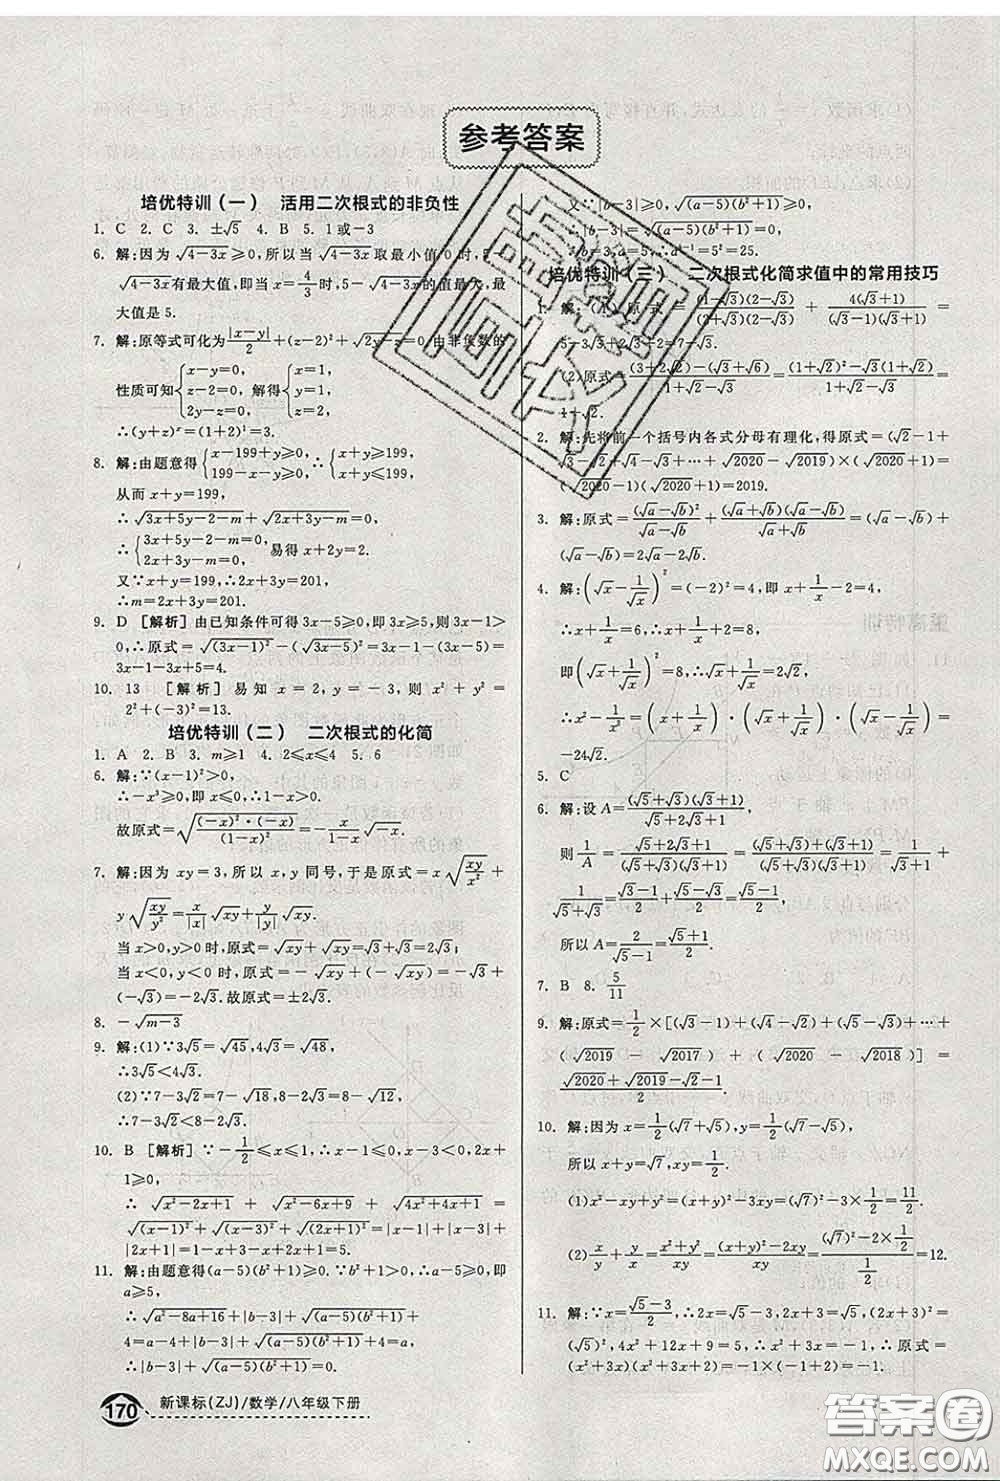 参考答案
培优特训(一) 活用二次根式的非负性
1. C 2. C 3. ±√5 4. B 5. 1或-3
6. 解:因为√(4-3x)≥0,所以当√(4-3x)取最小值0时,5-
√(4-3x)有最大值,即当x=4/3时,5-√(4-3x)的值最大,最
大值是5.
7. 解:原等式可化为|x-y|/2+(z-2)²+√(2y-z)=0,由非负数的
性质可知{x-y=0, z-2=0, 2y-z=0, 解得{x=1, y=1, z=2,
∴(y+z)ˣ=(1+2)¹=3.
8. 解:由题意得{x-199+y≥0, 199-x-y≥0, ∴{x+y≥199, x+y≤199,
从而x+y=199,
∴√(3x+5y-2-m)+√(2x+3y-m)=0,
∴{3x+5y-2-m=0, 2x+3y-m=0, 易得x+2y=2.
又∵x+y=199,∴2x+3y=201,
∴m=2x+3y=201.
9. D [解析] 由已知条件可得3x-5≥0,则3x-1>
0,∴原式=√(3x-1)²-√(3x-5)²=|3x-1|-|3x-5|=
3x-1-3x+5=4.
10. 13 [解析] 易知x=2,y=-3,则x²+y²=
2²+(-3)²=13.
培优特训(二) 二次根式的化简
1. A 2. B 3. m≥1 4. 2≤x≤4 5. 6
6. 解:∵(x-1)²>0,
∴-x³≥0,即x≤0,∴1-x>0.
故原式=√((-x)²·(-x)/(1-x)²)=-x/(1-x)√(-x).
7. 解:因为xy=3,所以x,y同号,于是原式=x√(xy/x²)+
y√(xy/y²)=x/|x|√(xy)+y/|y|√(xy).
当x>0,y>0时,原式=√(xy)+√(xy)=√3+√3=2√3;
当x<0,y<0时,原式=-√(xy)+(-√(xy))=-√3+
(-√3)=-2√3.故原式=±2√3.
8. -√(m-3)
9. 解:(1)∵3√5=√45,4√3=√48,
∴3√5<4√3.
(2)∵7-3√2=7-√18,8-2√3=8-√12,
∴7-3√2<8-2√3.
10. B [解析] ∵-1/2≤x≤1,∴x-1≤0,x-3<0,2x+
1≥0,
∴√(x²-2x+1)+√(x²-6x+9)+√(4x²+4x+1)=
√(x-1)²+√(x-3)²+√(2x+1)²=|x-1|+|x-3|+
|2x+1|=1-x+3-x+2x+1=5.
11. 解:由题意得(a-5)(b²+1)≥0.∵b²+1>0,∴a-5≥0,即
a≥5,
∴√(a²-8a+16)+|b-3|+√((a-5)(b²+1))+4=|a-4|+
4=a-4+|b-3|+√((a-5)(b²+1))+4=a,
∴|b-3|+√((a-5)(b²+1))=0.
又∵|b-3|≥0,√((a-5)(b²+1))≥0,
∴|b-3|=√((a-5)(b²+1))=0,
∴b=3,a=5,∴a²=5²=25.
培优特训(三) 二次根式化简求值中的常用技巧
1. 解:(1)原式=(1-√3)(2-√3)/((2+√3)(2-√3))+4(√3+1)/((√3-1)(√3+1))=
5-3√3+2√3+2=7-√3.
(2)原式=((3+2√2)-(√3+√6))/(1+√2-√3)=((1+√2)²-√3(1+√2))/(1+√2-√3)=
1+√2.
2. 解:先将前一个括号内各式分母有理化,得原式=(√2-1+
√3-√2+√4-√3+…+√2020-√2019)×(√2020+1)=
(√2020-1)(√2020+1)=2019.
3. 解:原式=(√a-√b)²/(√a-√b)+(√a+√b)(√a-√b)/(√a+√b)=(√a-√b)+
(√a-√b)=2√a-2√b.
4. 解:(√x-1/√x)²=(-2)²=4,即x+1/x-2=4,
∴x+1/x=6,∴x+1/x+2=8,
即(√x+1/√x)²=8,∴√x+1/√x=2√2,
∴x²-1/x²=(x+1/x)·(√x+1/√x)·(√x-1/√x)=
-24√2.
5. C
6. 解:设A=(√5+√3)(√3+1)/(√5+2√3+1),
则1/A=(√5+2√3+1)/((√5+√3)(√3+1))=((√5+√3)+(√3+1))/((√5+√3)(√3+1))=1/(√3+1)+
1/(√5+√3)=(√3-1)/2+(√5-√3)/2=(√5-1)/2,
所以A=2/(√5-1)=(√5+1)/2.
7. B 8. 5/11
9. 解:原式=1/2×[(√3-1)+(√4-√2)+(√5-√3)+…+
(√2019-√2017)+(√2020-√2018)]=
(√2020+√2019-√2-1)/2.
10. 解:因为x=1/2(√7+√5),y=1/2(√7-√5),
所以x+y=√7,xy=1/2.
(1)x²-xy+y²=(x+y)²-3xy=(√7)²-3×1/2=11/2.
(2)x/y+y/x=(x²+y²)/xy=((x+y)²-2xy)/xy=((√7)²-2×1/2)/(1/2)=12.
11. 解:∵x=(√5-3)/2,∴2x=√5-3,2x+3=√5,(2x+3)²=
(√5)²,4x²+12x+9=5,∴x²+3x=-1,∴原式=
(x²+3x)(x²+3x+2)=-1×(-1+2)=-1.
170 新课标(ZJ)/数学/八年级下册
答案圈
MXQE.COM